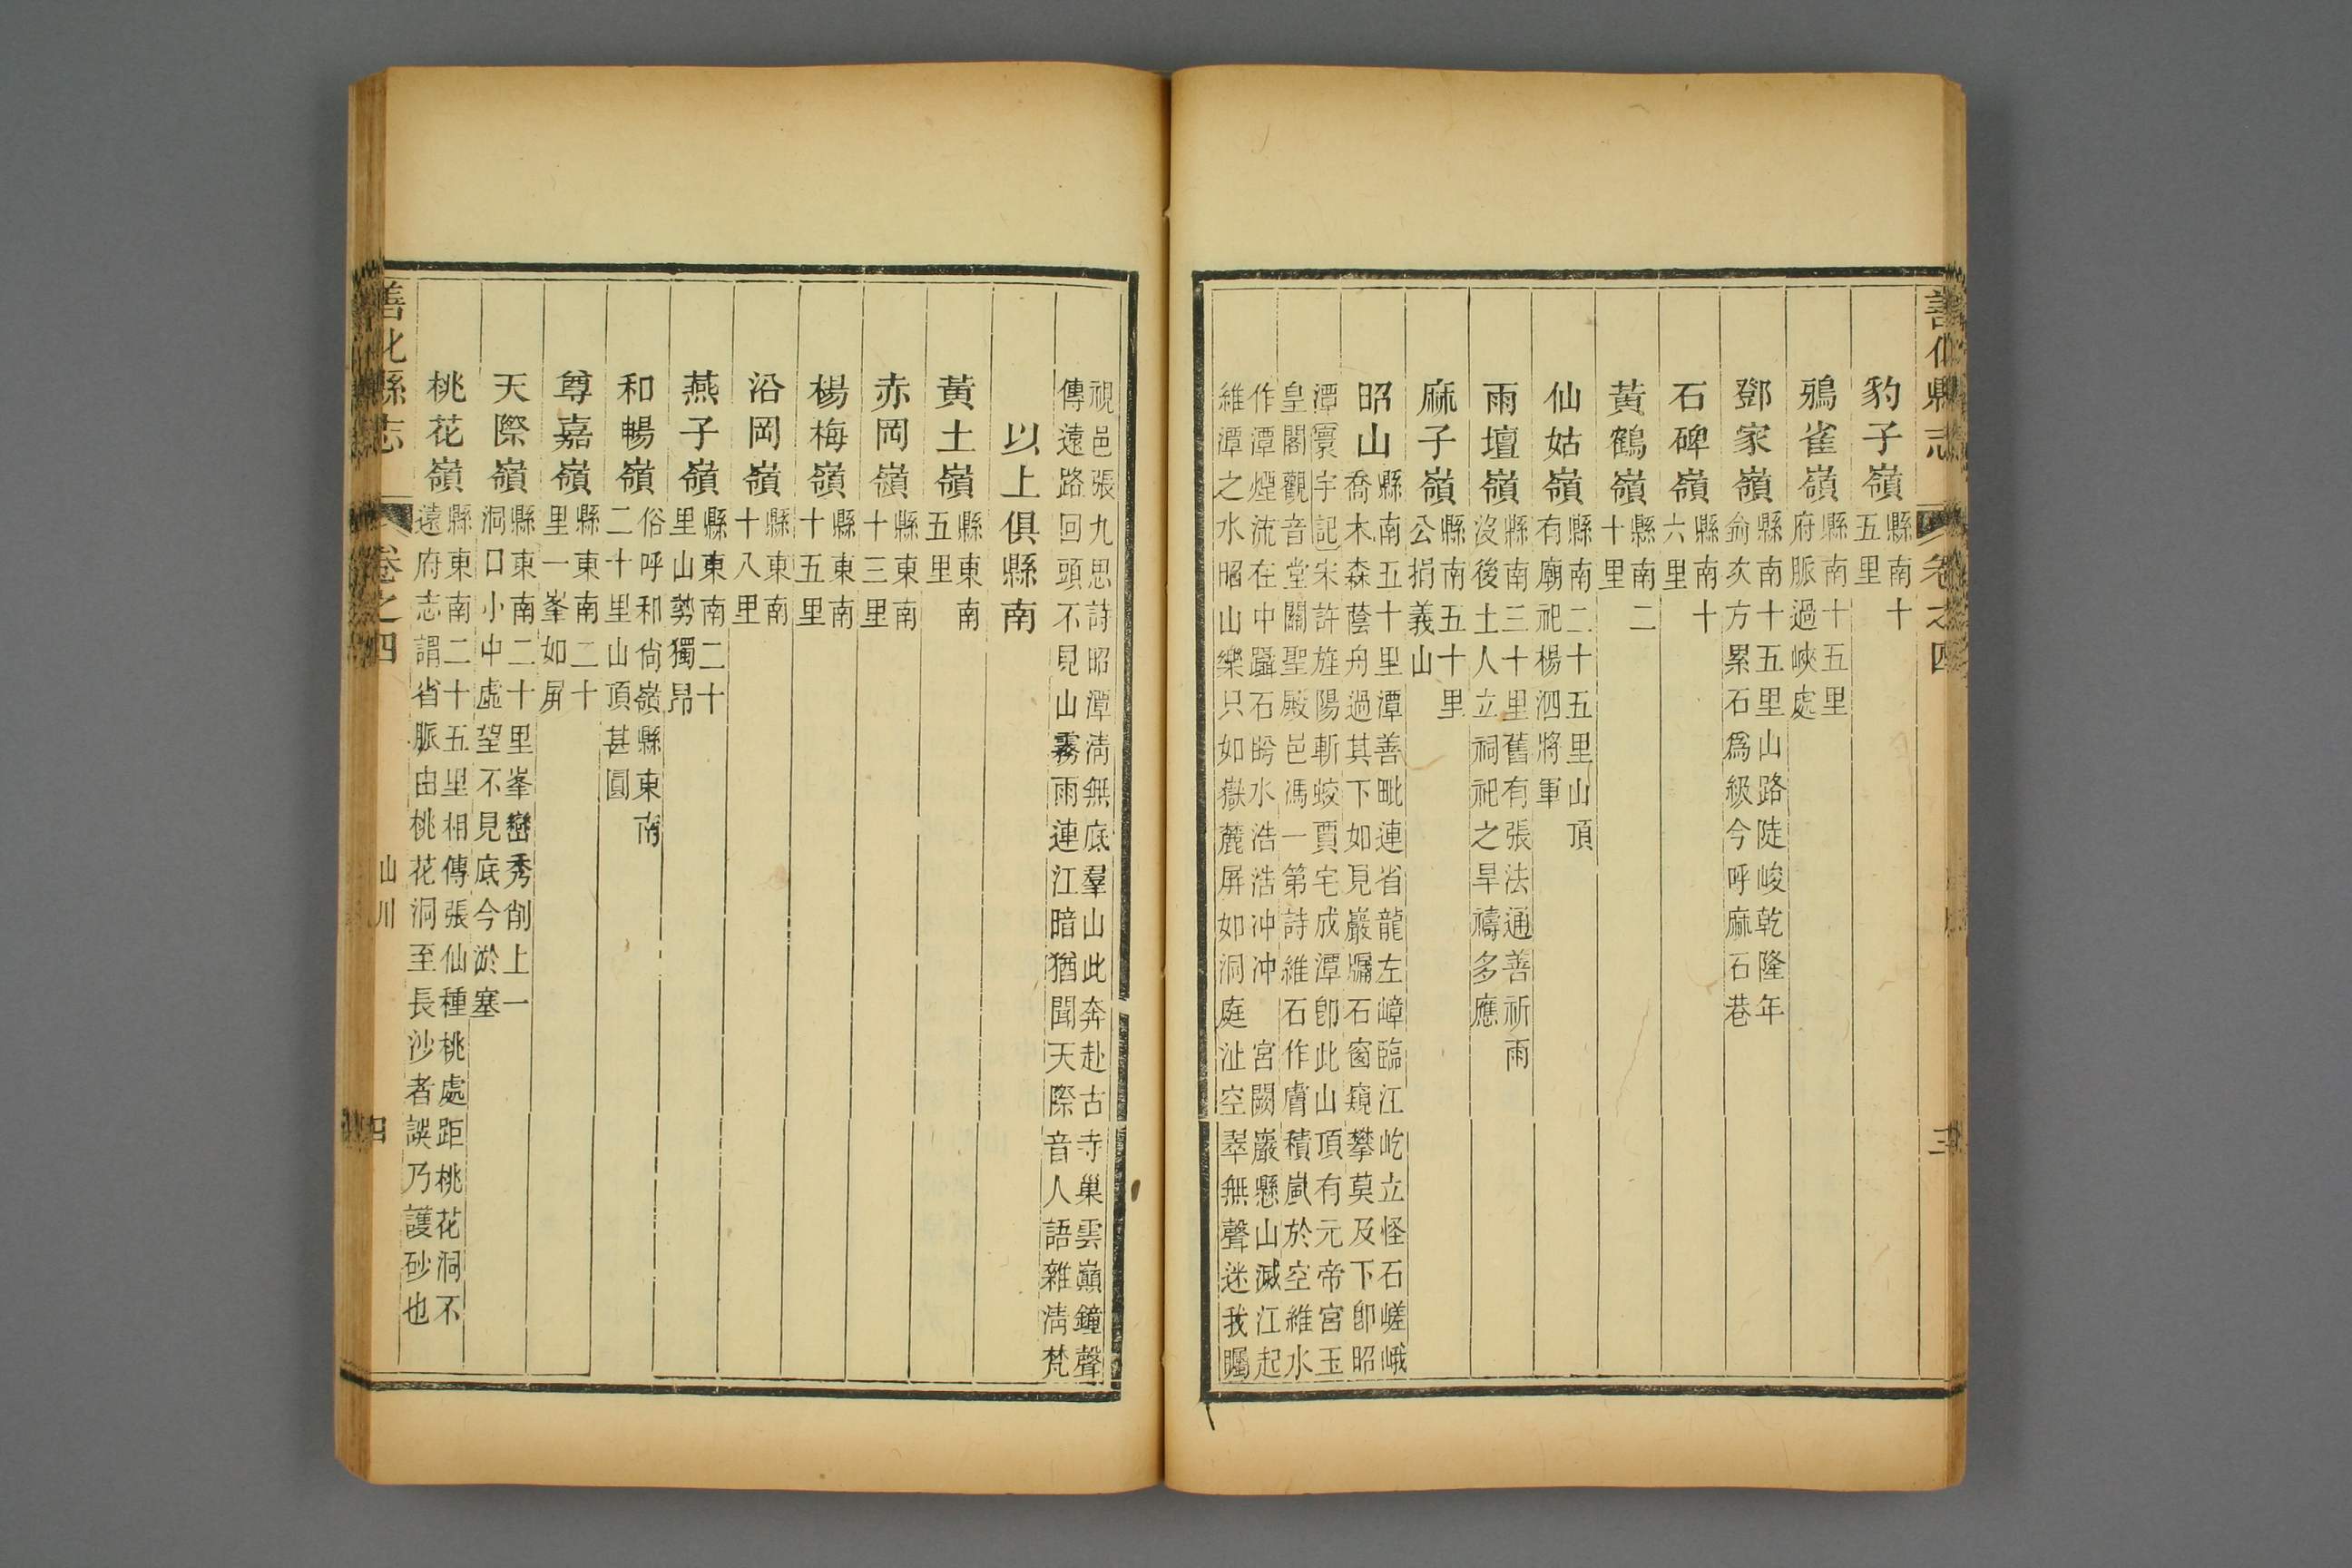 善化縣志
卷之四
三
豹子嶺縣南十五里
鴉雀嶺縣南十五里府脈過峽處
鄧家嶺縣南十五里山路陡峻乾隆年俞亥方累石爲級今呼麻石巷
石碑嶺縣南十六里
黃鶴嶺縣南二十里
仙姑嶺縣南二十五里山頂有廟祀楊泗將軍
雨壇嶺縣南三十里舊有張法通善祈雨沒後土人立祠祀之旱禱多應
麻子嶺縣南五十里公捐義山
昭山縣南五十里潭善毗連省龍左嶂臨江屹立怪石嵯峨喬木森蔭舟過其下如見巖牖石窗窺攀莫及下卽昭
潭寰宇記宋許旌陽斬蛟賈宅成潭卽此山頂有元帝宮玉皇閣觀音堂關聖殿邑馮一第詩維石作膚積嵐於空維水
作潭煙流在中躡石盻水浩浩沖沖 宮闕巖懸山滅江起維潭之水昭山樂只如嶽麓屏如洞庭沚空翠無聲迷我矚
視邑張九思詩昭潭清無底羣山此奔赴古寺巢雲巔鐘聲傳遠路回頭不見山霧雨連江暗猶聞天際音人語雜清梵
以上俱縣南
黃土嶺縣東南五里
赤岡嶺縣東南十三里
楊梅嶺縣東南十五里
沿岡嶺縣東南十八里
燕子嶺縣東南二十里山勢獨昂
和暢嶺俗呼和尙嶺縣東南二十里山頂甚圓
尊嘉嶺縣東南二十里一峯如屛
天際嶺縣東南二十里峯巒秀削上一洞口小中虛望不見底今淤塞
桃花嶺縣東南二十五里相傳張仙種桃處距桃花洞不遠府志謂省脈由桃花洞至長沙者誤乃護砂也
善化縣志
卷之四
山川
四